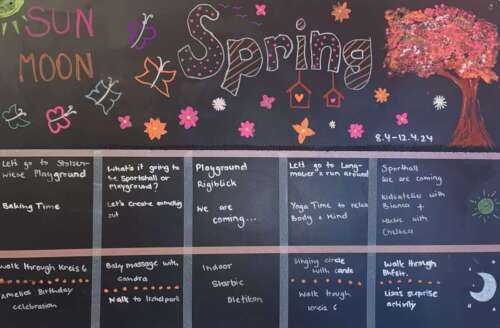 SUN
MOON
Spring
8.4-12.4.24
Let's go to Stolzen-
wiese Playground
Baking Time
What's it going to
be Sportshall or
Playground?
Let's create something
out
Playground
Rigiblick
We are
coming...
Let's go to Lang-
mauer & run around
Yoga Time to relax
Body & Mind
Sporthall
We are coming
Kidsatelier with
Bianca +
Music with
Chelsea
Walk through Kreis 6
Amelies Birthday
celebration
Baby massage with
Sandra
Walk to Irchelpark
Indoor
Starbie
Dietikon
Singing circle
with
Walk trough
Kreis 6
Walk through
Bhfstr.
Lisa's surprise
activity